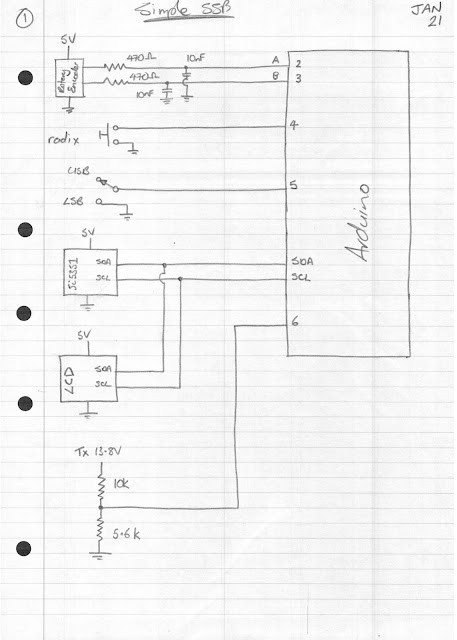 1
Simple SSB
JAN
21
5V
Rotary
Encoder
470Ω
10nF
470Ω
10nF
A
B
2
3
radix
4
USB
LSB
5
5V
Si5351
SDA
SCL
SDA
SCL
Arduino
6
5V
LCD
SDA
SCL
Tx 13.8V
10k
5.6k